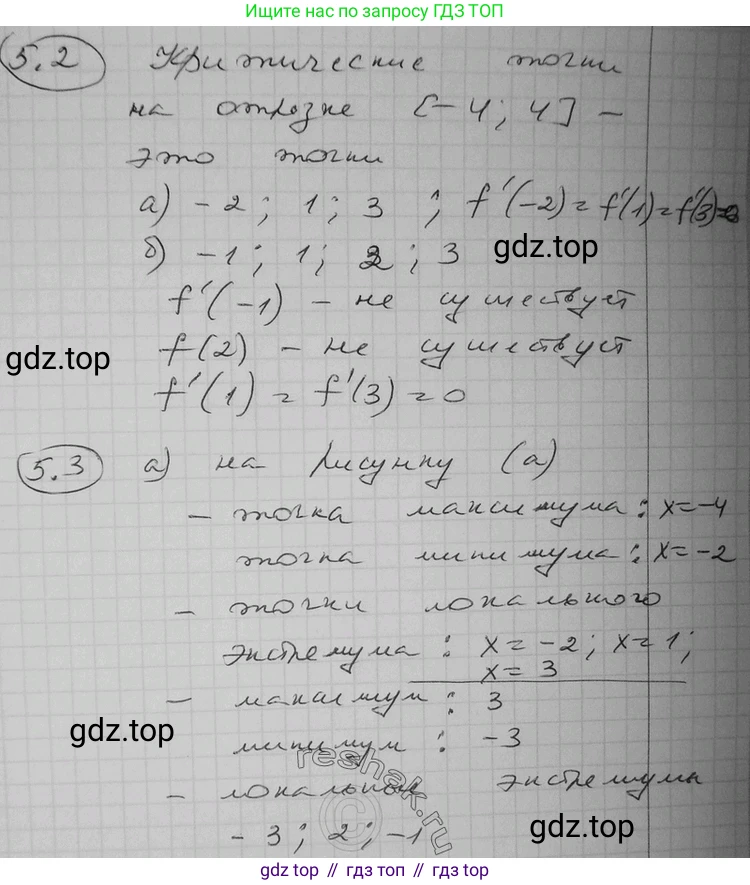 Ищите нас по запросу ГДЗ ТОП
5.2 Критические точки
на отрезке [-4; 4] -
это точки
а) -2; 1; 3 ; f'(-2) = f'(1) = f'(3) = 0
б) -1; 1; 2; 3
gdz.top
f'(-1) - не существует
f(2) - не существует
gdz.top
f'(1) = f'(3) = 0
5.3 а) на рисунку (а)
- точка максимума: x=-4
точка минимума: x=-2
- точки локального
экстремума: x=-2; x=1;
x=3
- максимум: 3
gdz.top
минимум: -3
reshak
- локальные экстремумы
-3; 2; -1
gdz.top
gdz top // гдз топ // gdz top // гдз топ // gdz top